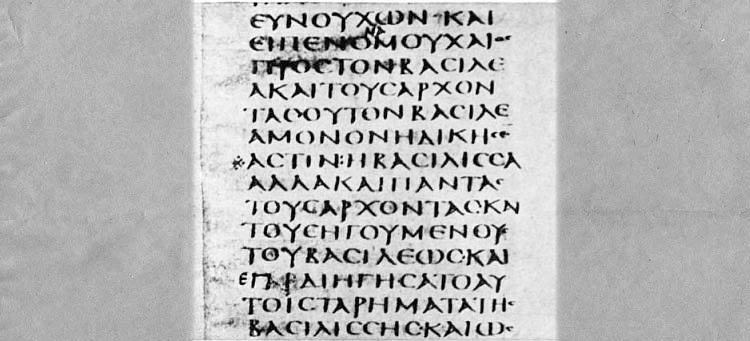 ΕΥΝΟΥΧΩΝ ΚΑΙ
ΕΙΠΕΝΟΜΟΥΧΑΙ
ΠΡΟϹΤΟΝΒΑϹΙΛΕ
ΑΚΑΙΤΟΥϹΑΡΧΟΝ
ΤΑϹΟΥΤΟΝΒΑϹΙΛΕ
ΑΜΟΝΟΝΗΔΙΚΗϹΕ
ΑϹΤΙΝ:ΗΒΑϹΙΛΙϹϹΑ
ΑΛΛΑΚΑΙΠΑΝΤΑϹ
ΤΟΥϹΑΡΧΟΝΤΑϹΚΝ
ΤΟΥϹΗΓΟΥΜΕΝΟΥϹ
ΤΟΥΒΑϹΙΛΕΩϹΚΑΙ
ΔΙΗΓΗϹΑΤΟΑΥ
ΤΟΙϹΤΑΡΗΜΑΤΑΤΗϹ
ΒΑϹΙΛΙϹϹΗϹΚΑΙΩϹ